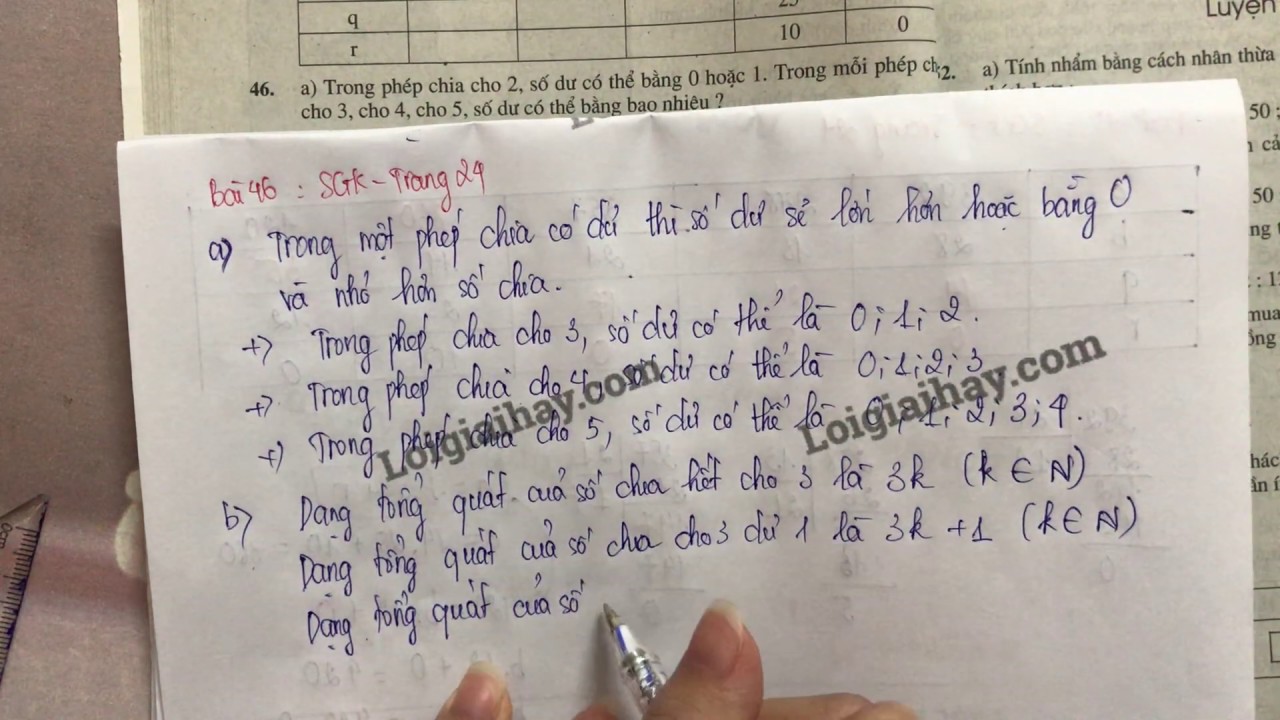 25
q
r
10
0
Luyện
46. a) Trong phép chia cho 2, số dư có thể bằng 0 hoặc 1. Trong mỗi phép ch
cho 3, cho 4, cho 5, số dư có thể bằng bao nhiêu ?
2. a) Tính nhẩm bằng cách nhân thừa
50
50
mua
hác
Bài 46 : SGK - Trang 24
a) Trong một phép chia có dư thì số dư sẽ lớn hơn hoặc bằng 0
và nhỏ hơn số chia.
+) Trong phép chia cho 3, số dư có thể là 0; 1; 2.
+) Trong phép chia cho 4, số dư có thể là 0; 1; 2; 3
+) Trong phép chia cho 5, số dư có thể là 0; 1; 2; 3; 4.
b) Dạng tổng quát của số chia hết cho 3 là 3k (k ∈ N)
Dạng tổng quát của số chia cho 3 dư 1 là 3k + 1 (k ∈ N)
Dạng tổng quát của số
Loigiaihay.com
Loigiaihay.com